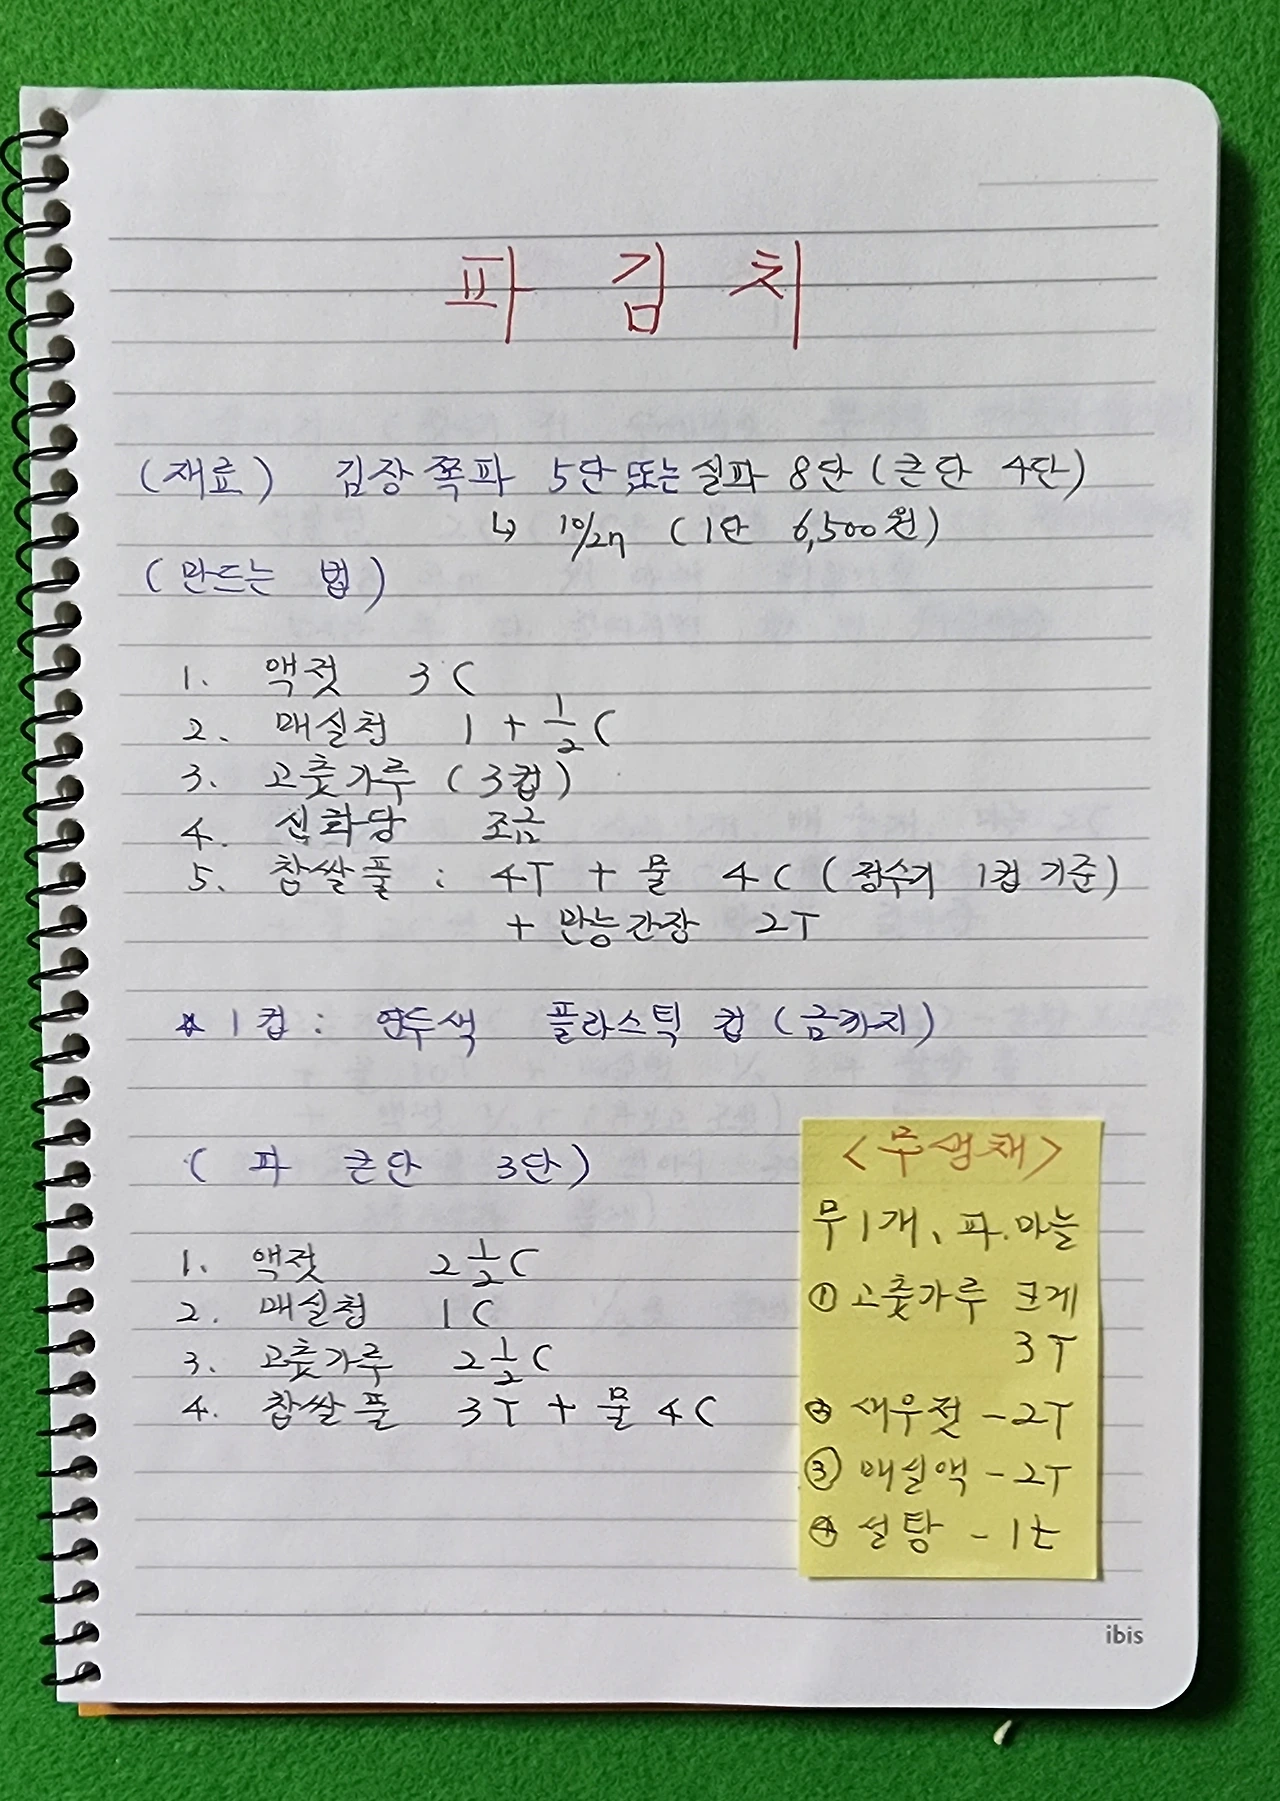 파 김 치
(재료) 김장 쪽파 5단 또는 실파 8단 (큰단 4단)
↳ 10/27 (1단 6,500원)
(만드는 법)
1. 액젓 3C
2. 매실청 1 + 1/2 C
3. 고춧가루 (3컵)
4. 신화당 조금
5. 찹쌀풀 : 4T + 물 4C (정수기 1컵 기준)
+ 만능간장 2T
* 1컵 : 연두색 플라스틱 컵 (금까지)
( 파 큰단 3단)
1. 액젓 2 1/2 C
2. 매실청 1C
3. 고춧가루 2 1/2 C
4. 찹쌀풀 3T + 물 4C
<무생채>
무 1개, 파. 마늘
① 고춧가루 크게
3T
② 새우젓 - 2T
③ 매실액 - 2T
④ 설탕 - 1t
ibis